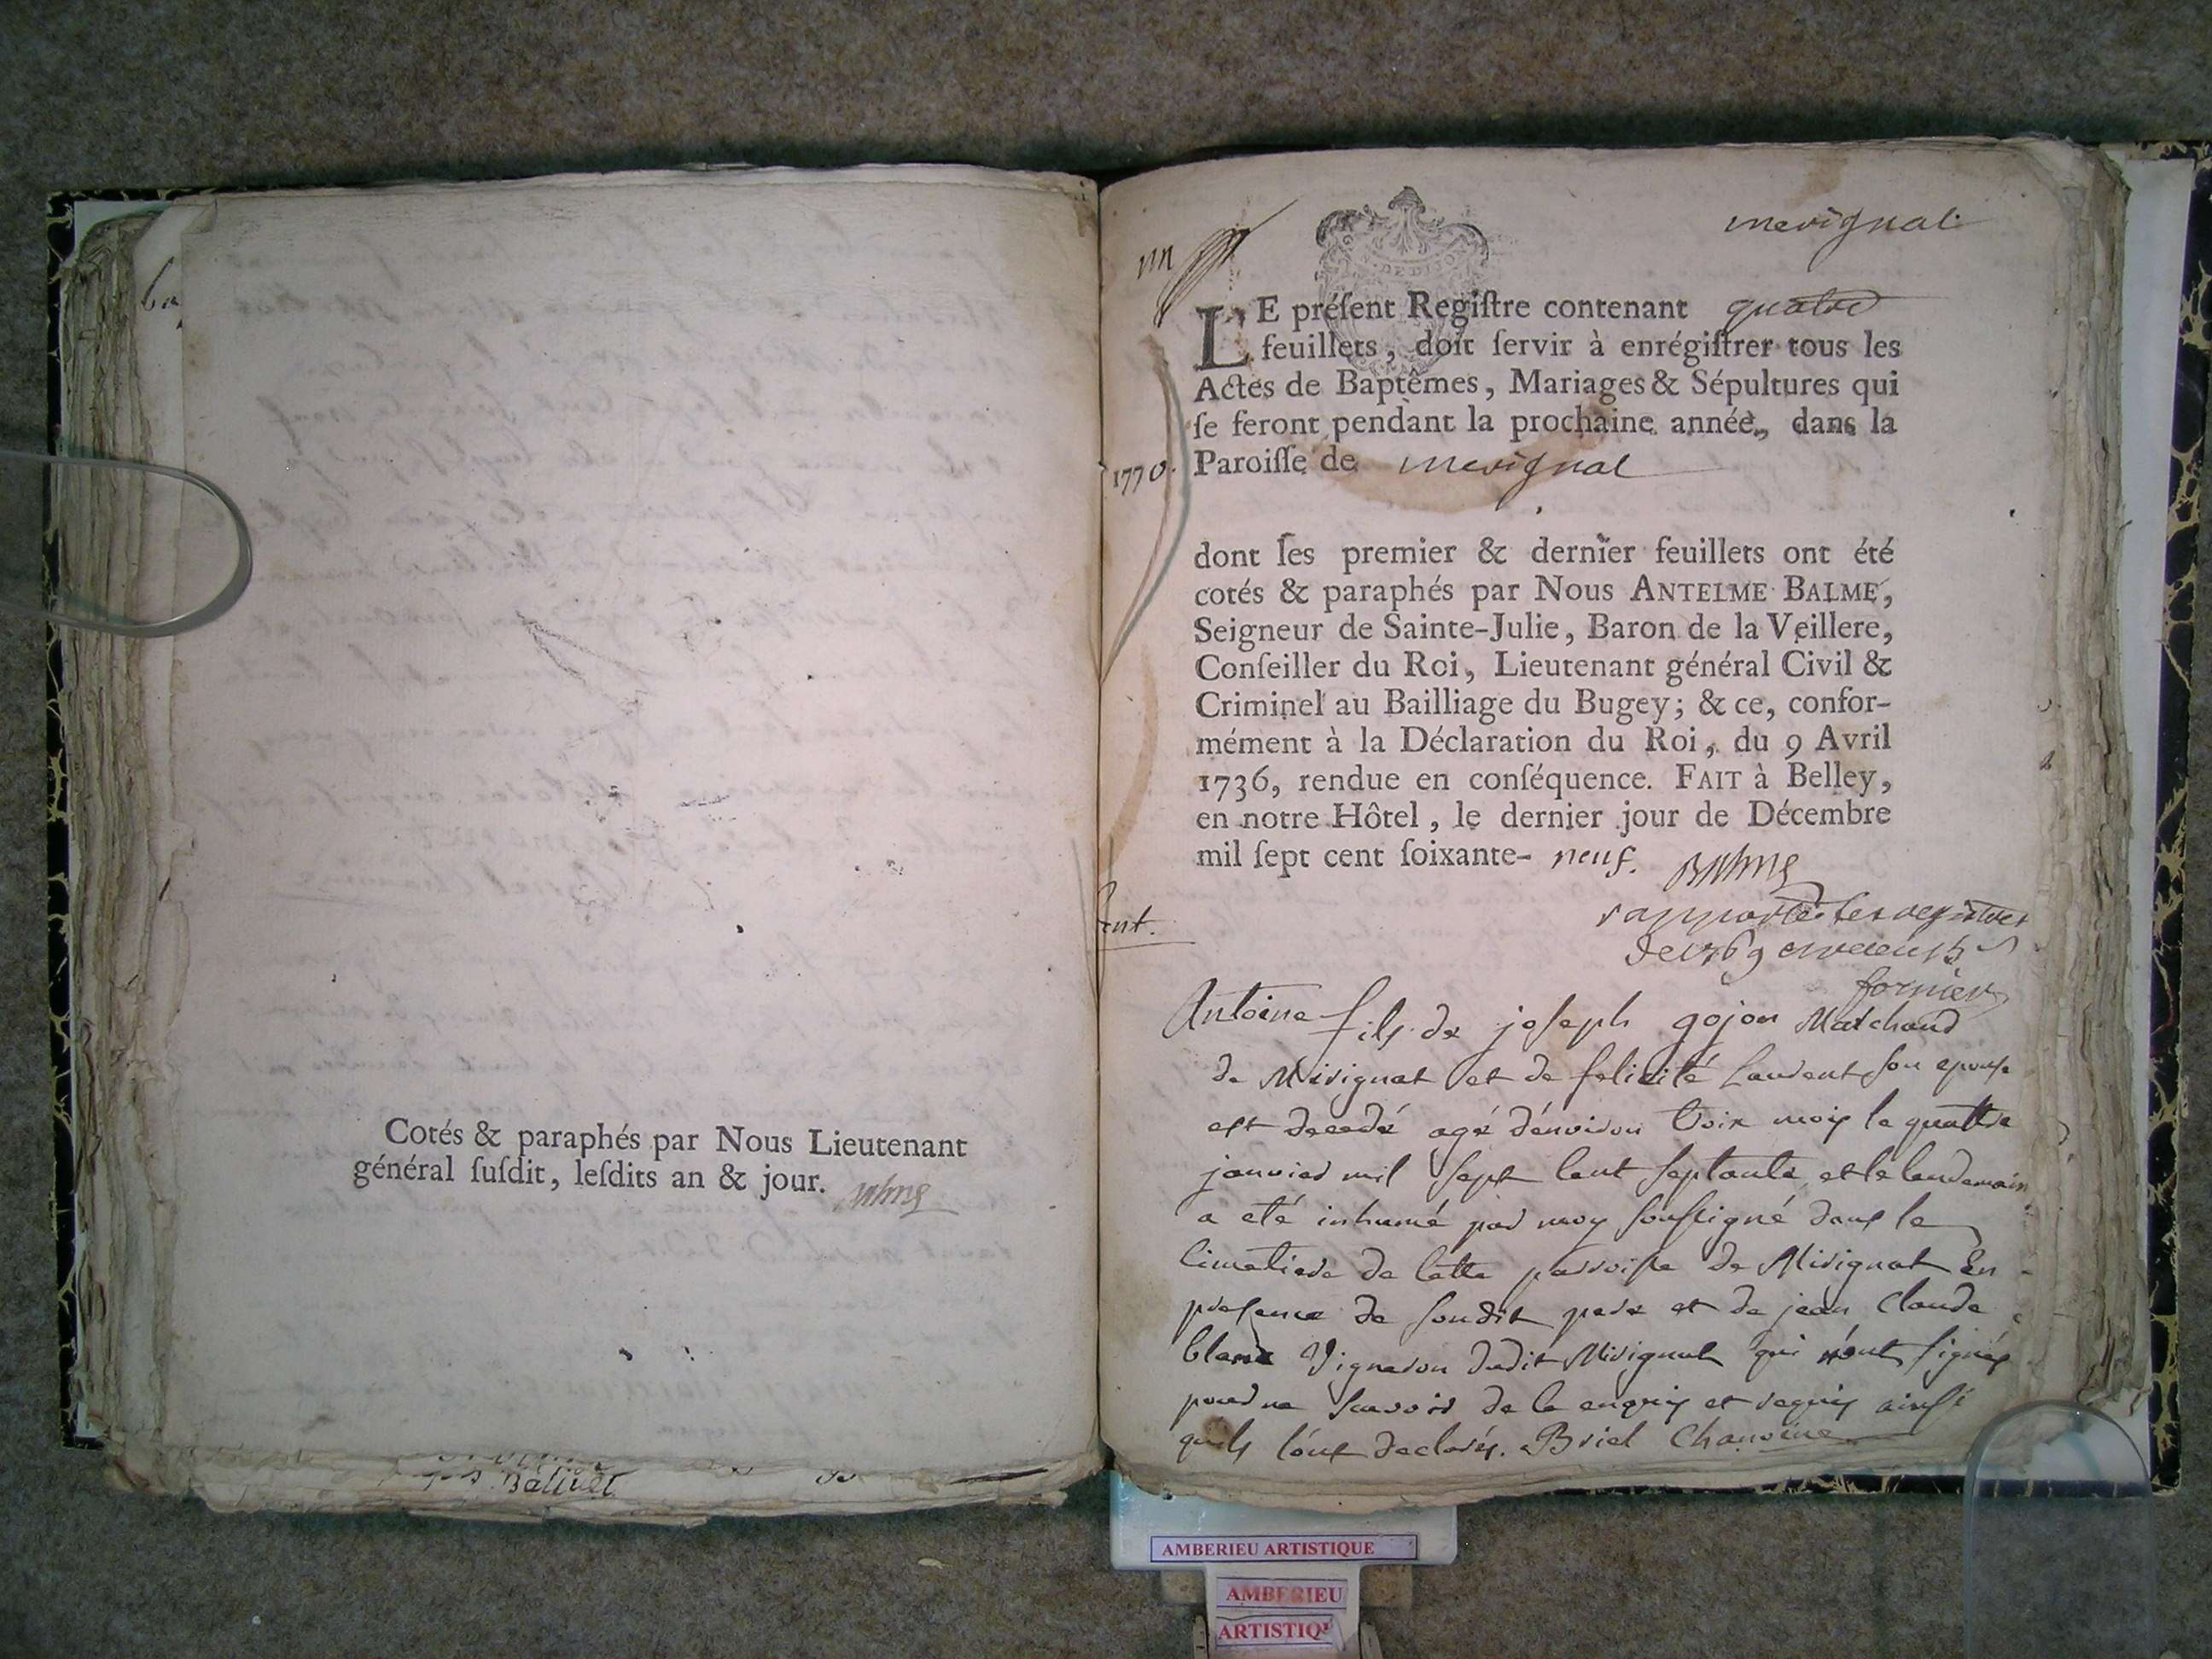 ba
Cotés & paraphés par Nous Lieutenant
général ſuſdit, leſdits an & jour. Balme
Balivet
un
merignat
LE préſent Regiſtre contenant quatre
feuillets, doit ſervir à enrégiſtrer tous les
Actes de Baptêmes, Mariages & Sépultures qui
ſe feront pendant la prochaine année, dans la
1770. Paroiſſe de merignat
dont les premier & dernier feuillets ont été
cotés & paraphés par Nous ANTELME BALME,
Seigneur de Sainte-Julie, Baron de la Veillere,
Conſeiller du Roi, Lieutenant général Civil &
Criminel au Bailliage du Bugey; & ce, confor-
mément à la Déclaration du Roi, du 9 Avril
1736, rendue en conſéquence. FAIT à Belley,
en notre Hôtel, le dernier jour de Décembre
mil ſept cent ſoixante- neuf. Balme
rapporté les registres
de 1769
fornier
Ent.
Antoine fils de joseph gojon Marchand
de Mirignat et de felicité Laurent son epouse
est decedé agé d'énviron trois mois le quattre
janvier mil sept cent septante et le lendemain
a eté inhumé par moy soussigné dans le
cimetiere de cette parroisse de Mirignat En
presence de sondit pere et de jean Claude
blanc Vigneron dudit Mirignat qui n'ont signés
pour ne scavoir de ce enquis et requis ainsi
quils l'ont declarés. Briel Chanoine
AMBERIEU ARTISTIQUE
AMBERIEU
ARTISTIQ